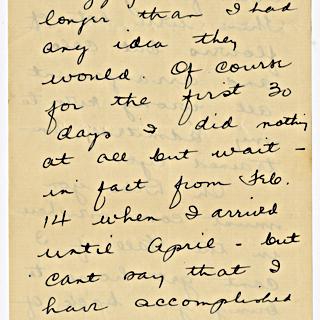 longer than I had
any idea they
would. Of course
for the first 30
days I did nothing
at all but wait -
in fact from Feb.
14 when I arrived
until April - but
cant say that I
have accomplished